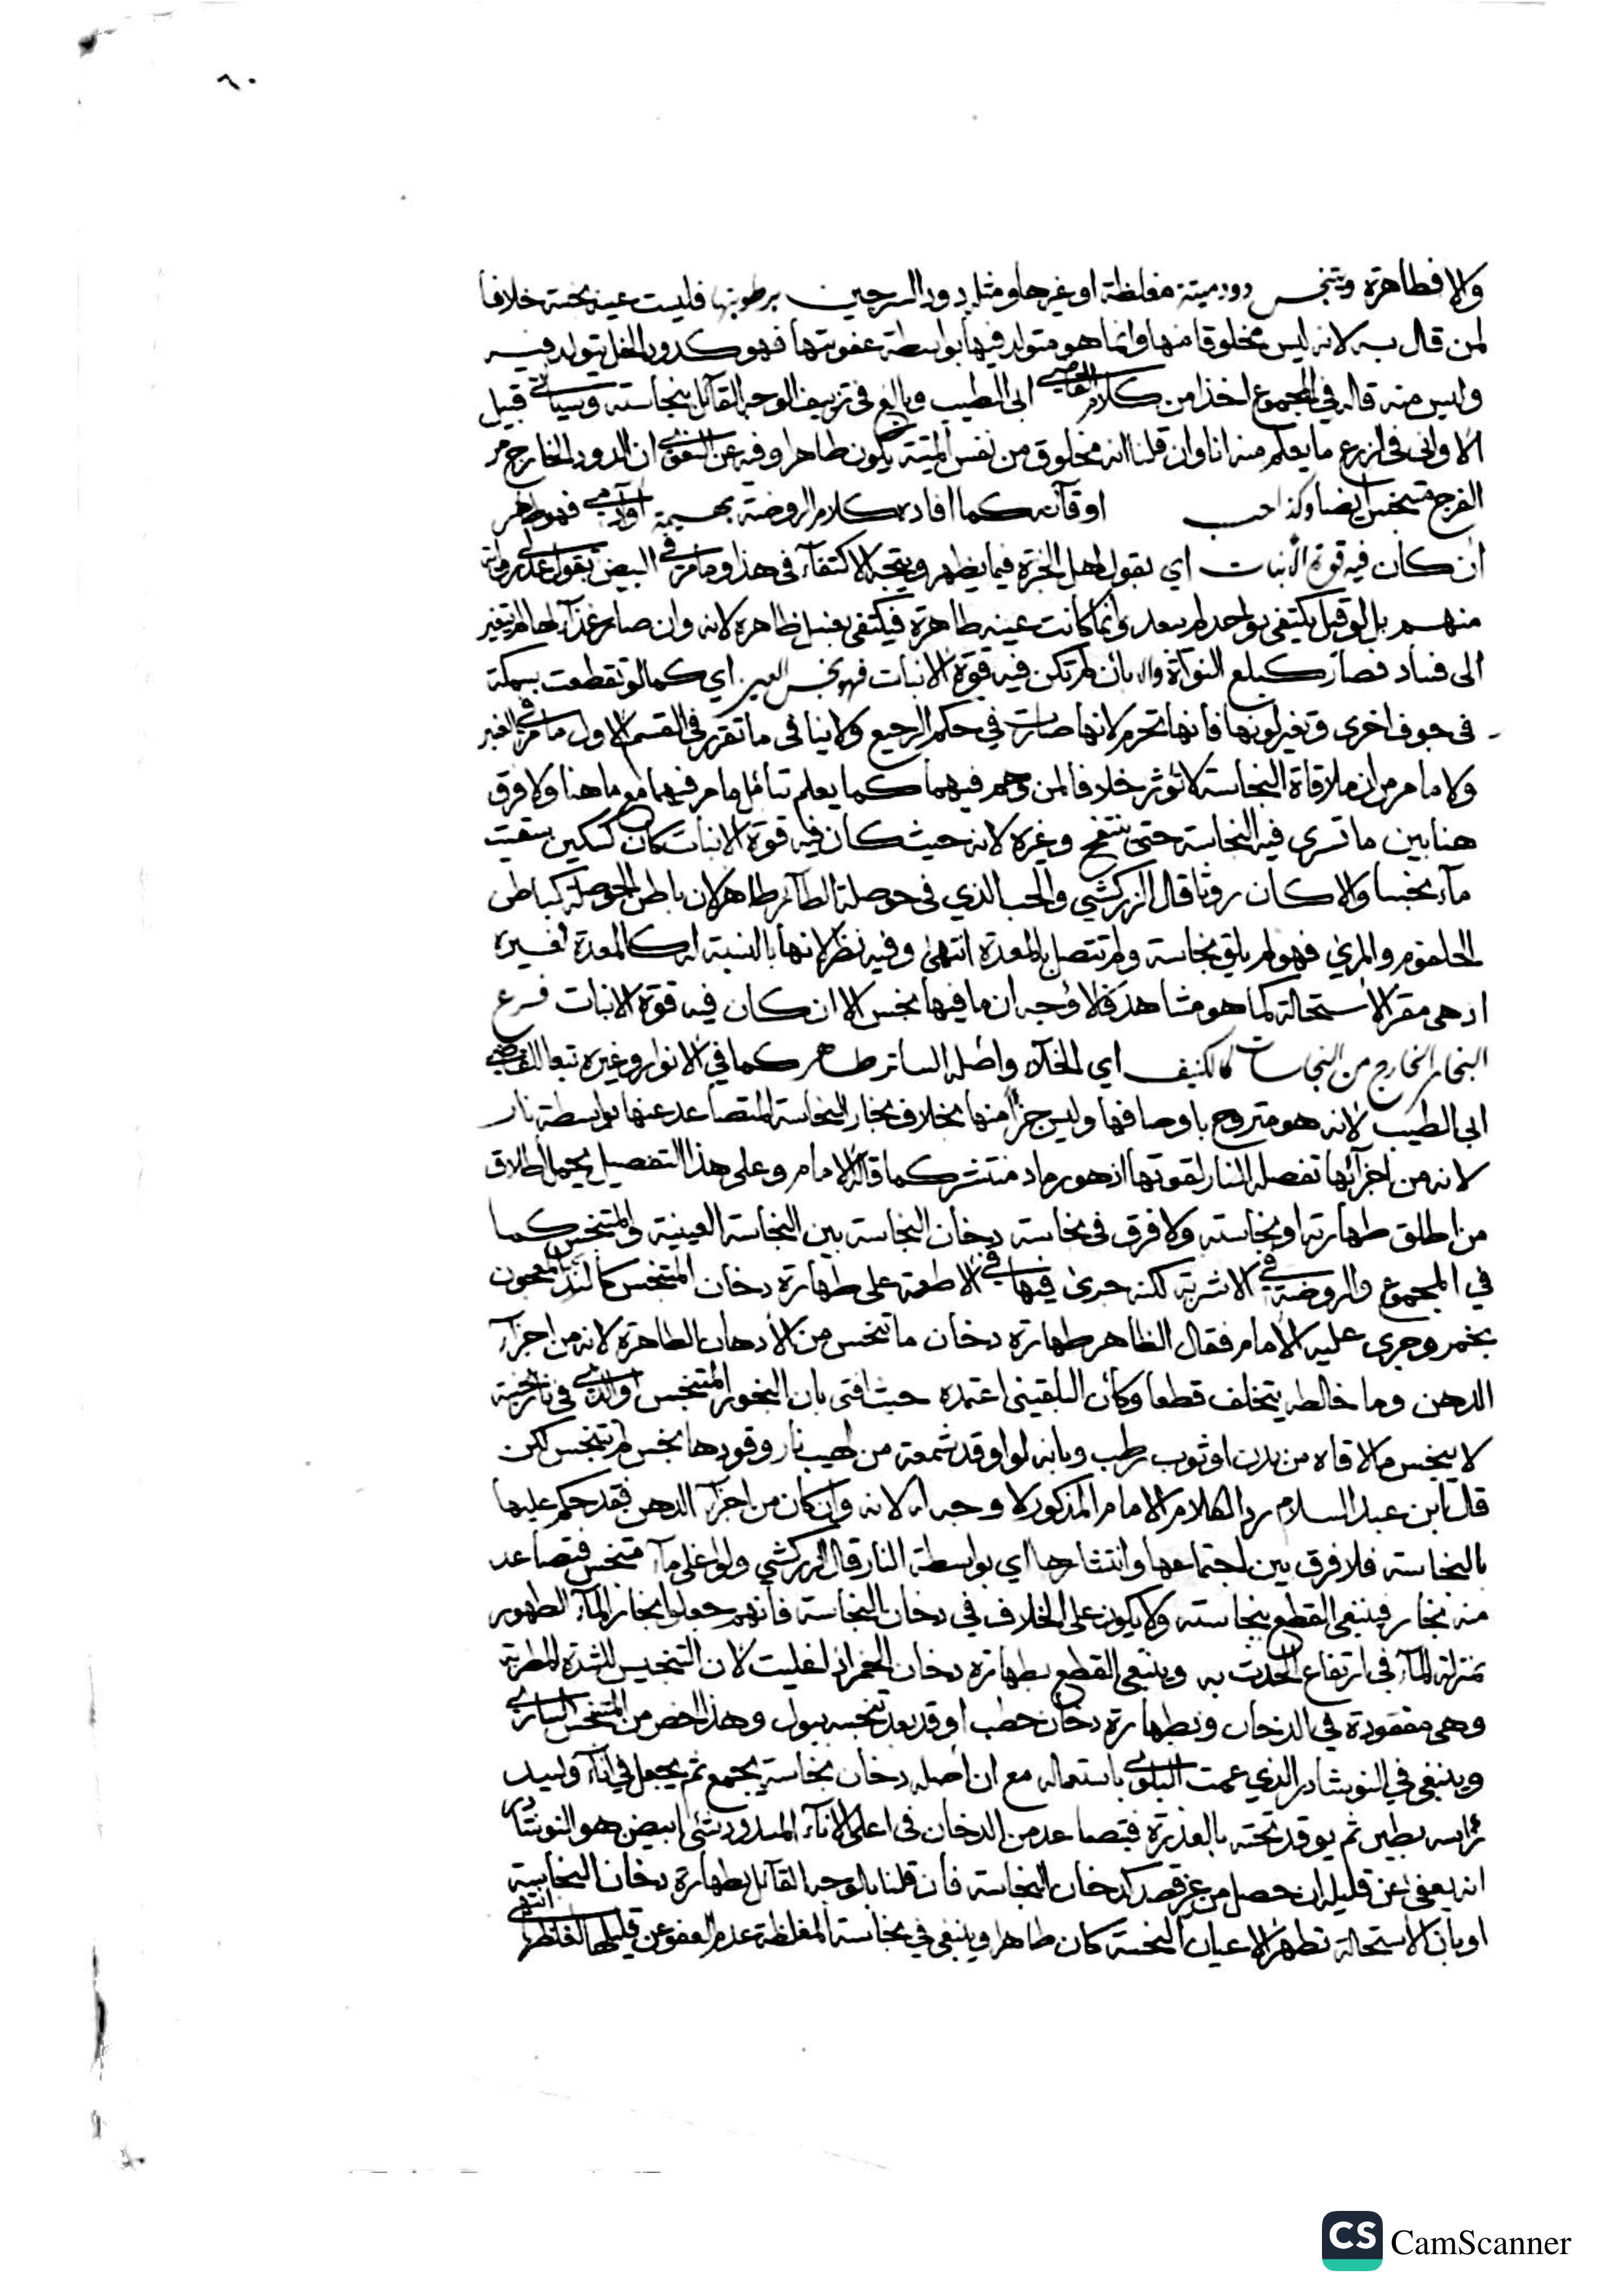 ٦٠
والا فطاهرة ويتنجس دود ميتة مغلظة او غيرها ومثله دود السرجين برطوبتها فليست عينه نجسة خلافا
لمن قال به لانه ليس مخلوقا منها وانما هو متولد فيها بواسطة عفونتها فهو كدود الخل يتولد فيه
وليس منه قاله في المجموع اخذا من كلام القاضي ابى الطيب وبالغ في تزييف الوجه القائل بنجاسته وسياتي قبيل
الاواني في الزرع ما يعلم منه انا وان قلنا انه مخلوق من نفس الميتة يكون طاهرا وفيه عن ان الدود الخارج من
الفرج متنجس ايضا وكذا حب او قآئه كما افاده كلام الروضة بهيمة او آدمي فهو طاهر
ان كان فيه قوة الانبات اي بقول اهل الخبرة فيما يظهر ويتجه الاكتفآء في هذا وما مر في البيض بقول عدلي رواية
منهم بل لو قيل يكتفى بواحد لم يبعد وانما كانت عينه طاهرة فيكتفى بغسل ظاهره لانه وان صار غذآء لها لم يتغير
الى فساد فصار كبلع النواة والا بان لم تكن فيه قوة الانبات فهو نجس العين اي كما لو تقطعت سمكة
في جوف اخرى وتغير لونها فانها تحرم لانها صارت في حكم الرجيع ولا ينافي ما تقرر في القسم الاول ما مر في
ولا ما مر من ان ملاقاة النجاسة لا تؤثر خلافا لمن وهم فيهما كما يعلم بتأمل ما مر فيهما مع ما هنا ولا فرق
هنا بين ما تسري فيه النجاسة حتى ينتفخ وغيره لانه حيث كان فيه قوة الانبات كان كسكين سقيت
مآء نجسا والا كان روثا قال الزركشي والحب الذي في حوصلة الطآئر طاهر لان باطن الحوصلة كباطن
الحلقوم والمريء فهو لم يلق نجاسة ولم تتصل بالمعدة انتهى وفيه نظر لانها بالنسبة له كالمعدة لغيره
اذ هي مقر الاستحالة كما هو مشاهد فالاوجه ان ما فيها نجس الا ان كان فيه قوة الانبات فرع
البخار الخارج من النجاسات كالكنيف اي الخلآء واصله الساتر طاهر كما في الانوار وغيره تبعا للقاضي
ابي الطيب لانه هو متروح باوصافها وليس جزأ منها بخلاف بخار النجاسة المتصاعد عنها بواسطة نار
لانه من اجزآئها تفصله النار لقوتها اذ هو رماد منتشر كما قاله الامام وعلى هذا التفصيل يحمل اطلاق
من اطلق طهارته او نجاسته ولا فرق في نجاسة دخان النجاسة بين النجاسة العينية والمتنجس كما
في المجموع والروضة في الاشربة لكنه جرى فيها في الاطعمة على طهارة دخان المتنجس كالند المعجون
بخمر وجرى عليه الامام فقال الظاهر طهارة دخان ما تنجس من الادهان الطاهرة لانه من اجزآء
الدهن وما خالطه يتخلف قطعا وكأن البلقيني اعتمده حيث افتى بان البخور المتنجس في نار نجسة
لا ينجس ما لاقاه من بدن او ثوب رطب وبانه لو اوقد شمعة من لهيب نار وقودها نجس لم تتنجس لكن
قال ابن عبد السلام ردا لكلام الامام المذكور لا وجه له لانه وان كان من اجزآء الدهن فقد حكم عليها
بالنجاسة فلا فرق بين اجتماعها وانتشارها اي بواسطة النار قال الزركشي ولو اغلي مآء متنجس فتصاعد
منه بخار فينبغي القطع بنجاسته ولا يكون على الخلاف في دخان النجاسة فانهم جعلوا بخار المآء الطهور
بمنزلة المآء في ارتفاع الحدث به وينبغي القطع بطهارة دخان الخمر اذا غليت لان التنجيس للشدة المطربة
وهي مفقودة في الدخان وبطهارة دخان حطب اوقد بعد تنجسه ببول وهذا اخص من المتنجس السابق
وينبغي في النوشادر الذي عمت البلوى باستعماله مع ان اصله دخان نجاسة يجمع ثم يجعل في انآء وليسد
رأسه بطين ثم يوقد تحته بالعذرة فيتصاعد من الدخان في اعلى الانآء المسدود شئ ابيض هو النوشادر
انه يعفى عن قليله ان حصل من غير قصد كدخان النجاسة فان قلنا بالوجه القائل بطهارة دخان النجاسة
او بان الاستحالة تطهر الاعيان النجسة كان طاهرا وينبغي في نجاسة المغلظة عدم العفو عن قليلها لغلظها انتهى
CS CamScanner